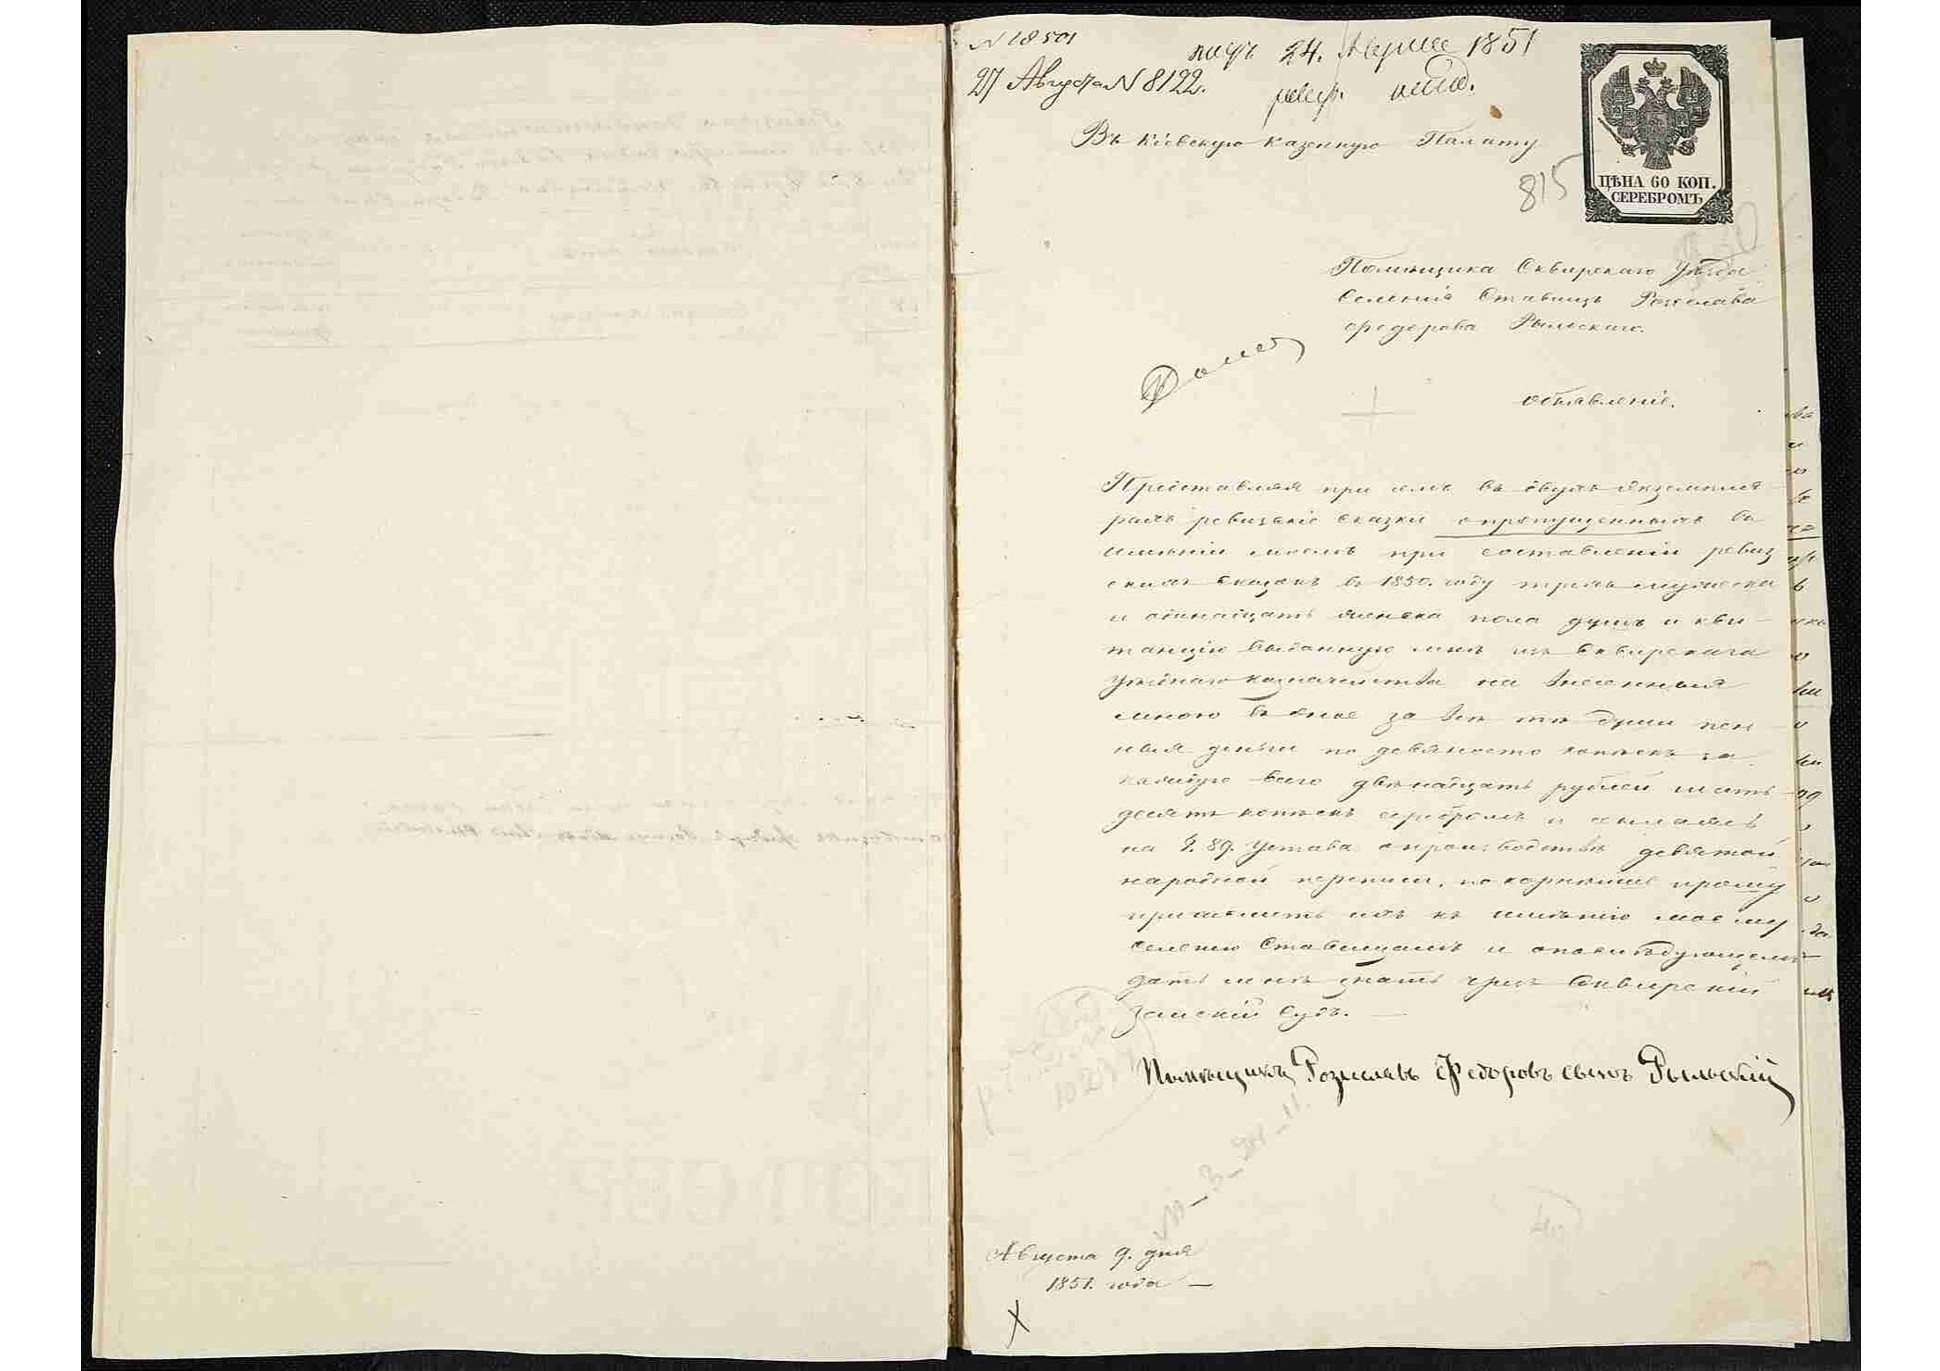 N 18501
27 Августа N 8122.
24. 1851
Въ Кіевскую Казенную Палату
815
ЦѢНА 60 КОП.
СЕРЕБРОМЪ
Помѣщика Сквирскаго Уѣзда
Селенія Ставищъ Розислава
Федорова Рыльскаго.
объявленіе.
Представляя при семъ въ двухъ экземпля
рахъ ревизскіе сказки опропущенныхъ въ
имѣніи моемъ при составленіи ревиз
скихъ сказокъ въ 1850. году трехъ мужеска
и одинацать женска пола душъ и кви-
танцію выданную мнѣ изъ Сквирскаго
Уѣзднаго казначейства на внесенныя
мною въ оное за всѣ тѣ души пен
ныя деньги по девяносто копѣекъ за
каждую всего двѣнадцать рублей шесть
десятъ копѣекъ серебромъ и ссылаясь
на §. 89. Устава опроизводствѣ девятой
народной переписи, покорнѣйше прошу
причислить ихъ къ имѣнію моему
селенію Ставищамъ и опослѣдующемъ
дать мнѣ знать чрезъ Сквирскій
Земскій Судъ. —
Помѣщикъ Розиславъ Федоровъ сынъ Рыльскій
Августа 9. дня
1851. года —